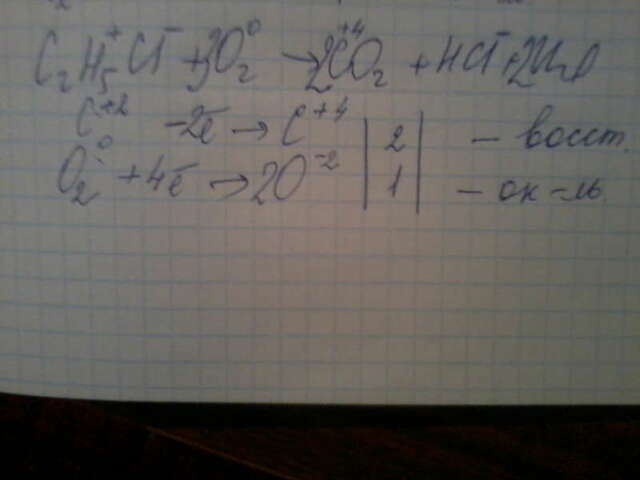 C₂H₅⁺Cl⁻ + 3O₂⁰ → 2C⁺⁴O₂ + HCl + 2H₂O
C⁺² -2ē → C⁺⁴ | 2 | - восст.
O₂⁰ +4ē → 2O⁻² | 1 | - ок-ль.